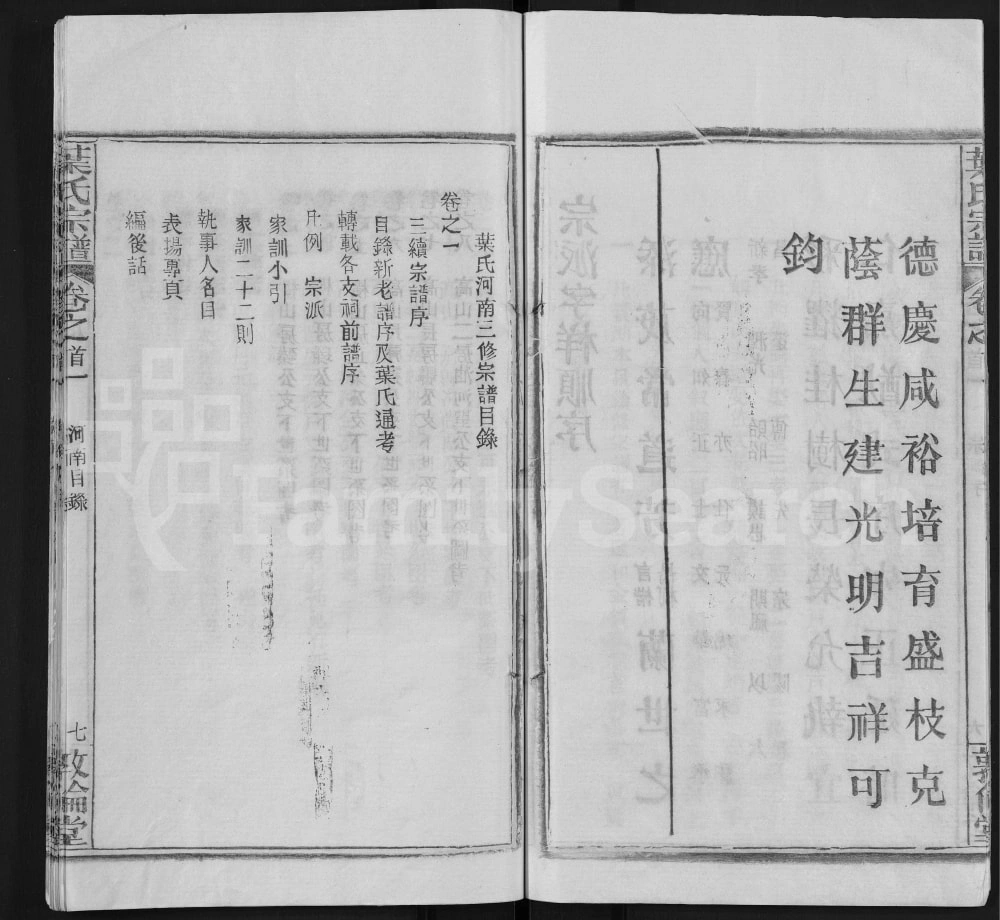 德慶咸裕培育盛枝克
蔭群生建光明吉祥可
鈞
葉氏河南三修宗譜目錄
卷之一
三續宗譜序
目錄新老譜序及葉氏通考
轉載各支祠前譜序
凡例 宗派
家訓小引
家訓二十二則
執事人名目
表揚專頁
編後話
葉氏宗譜 卷之首一 河南目錄 七 敦倫堂
FamilySearch